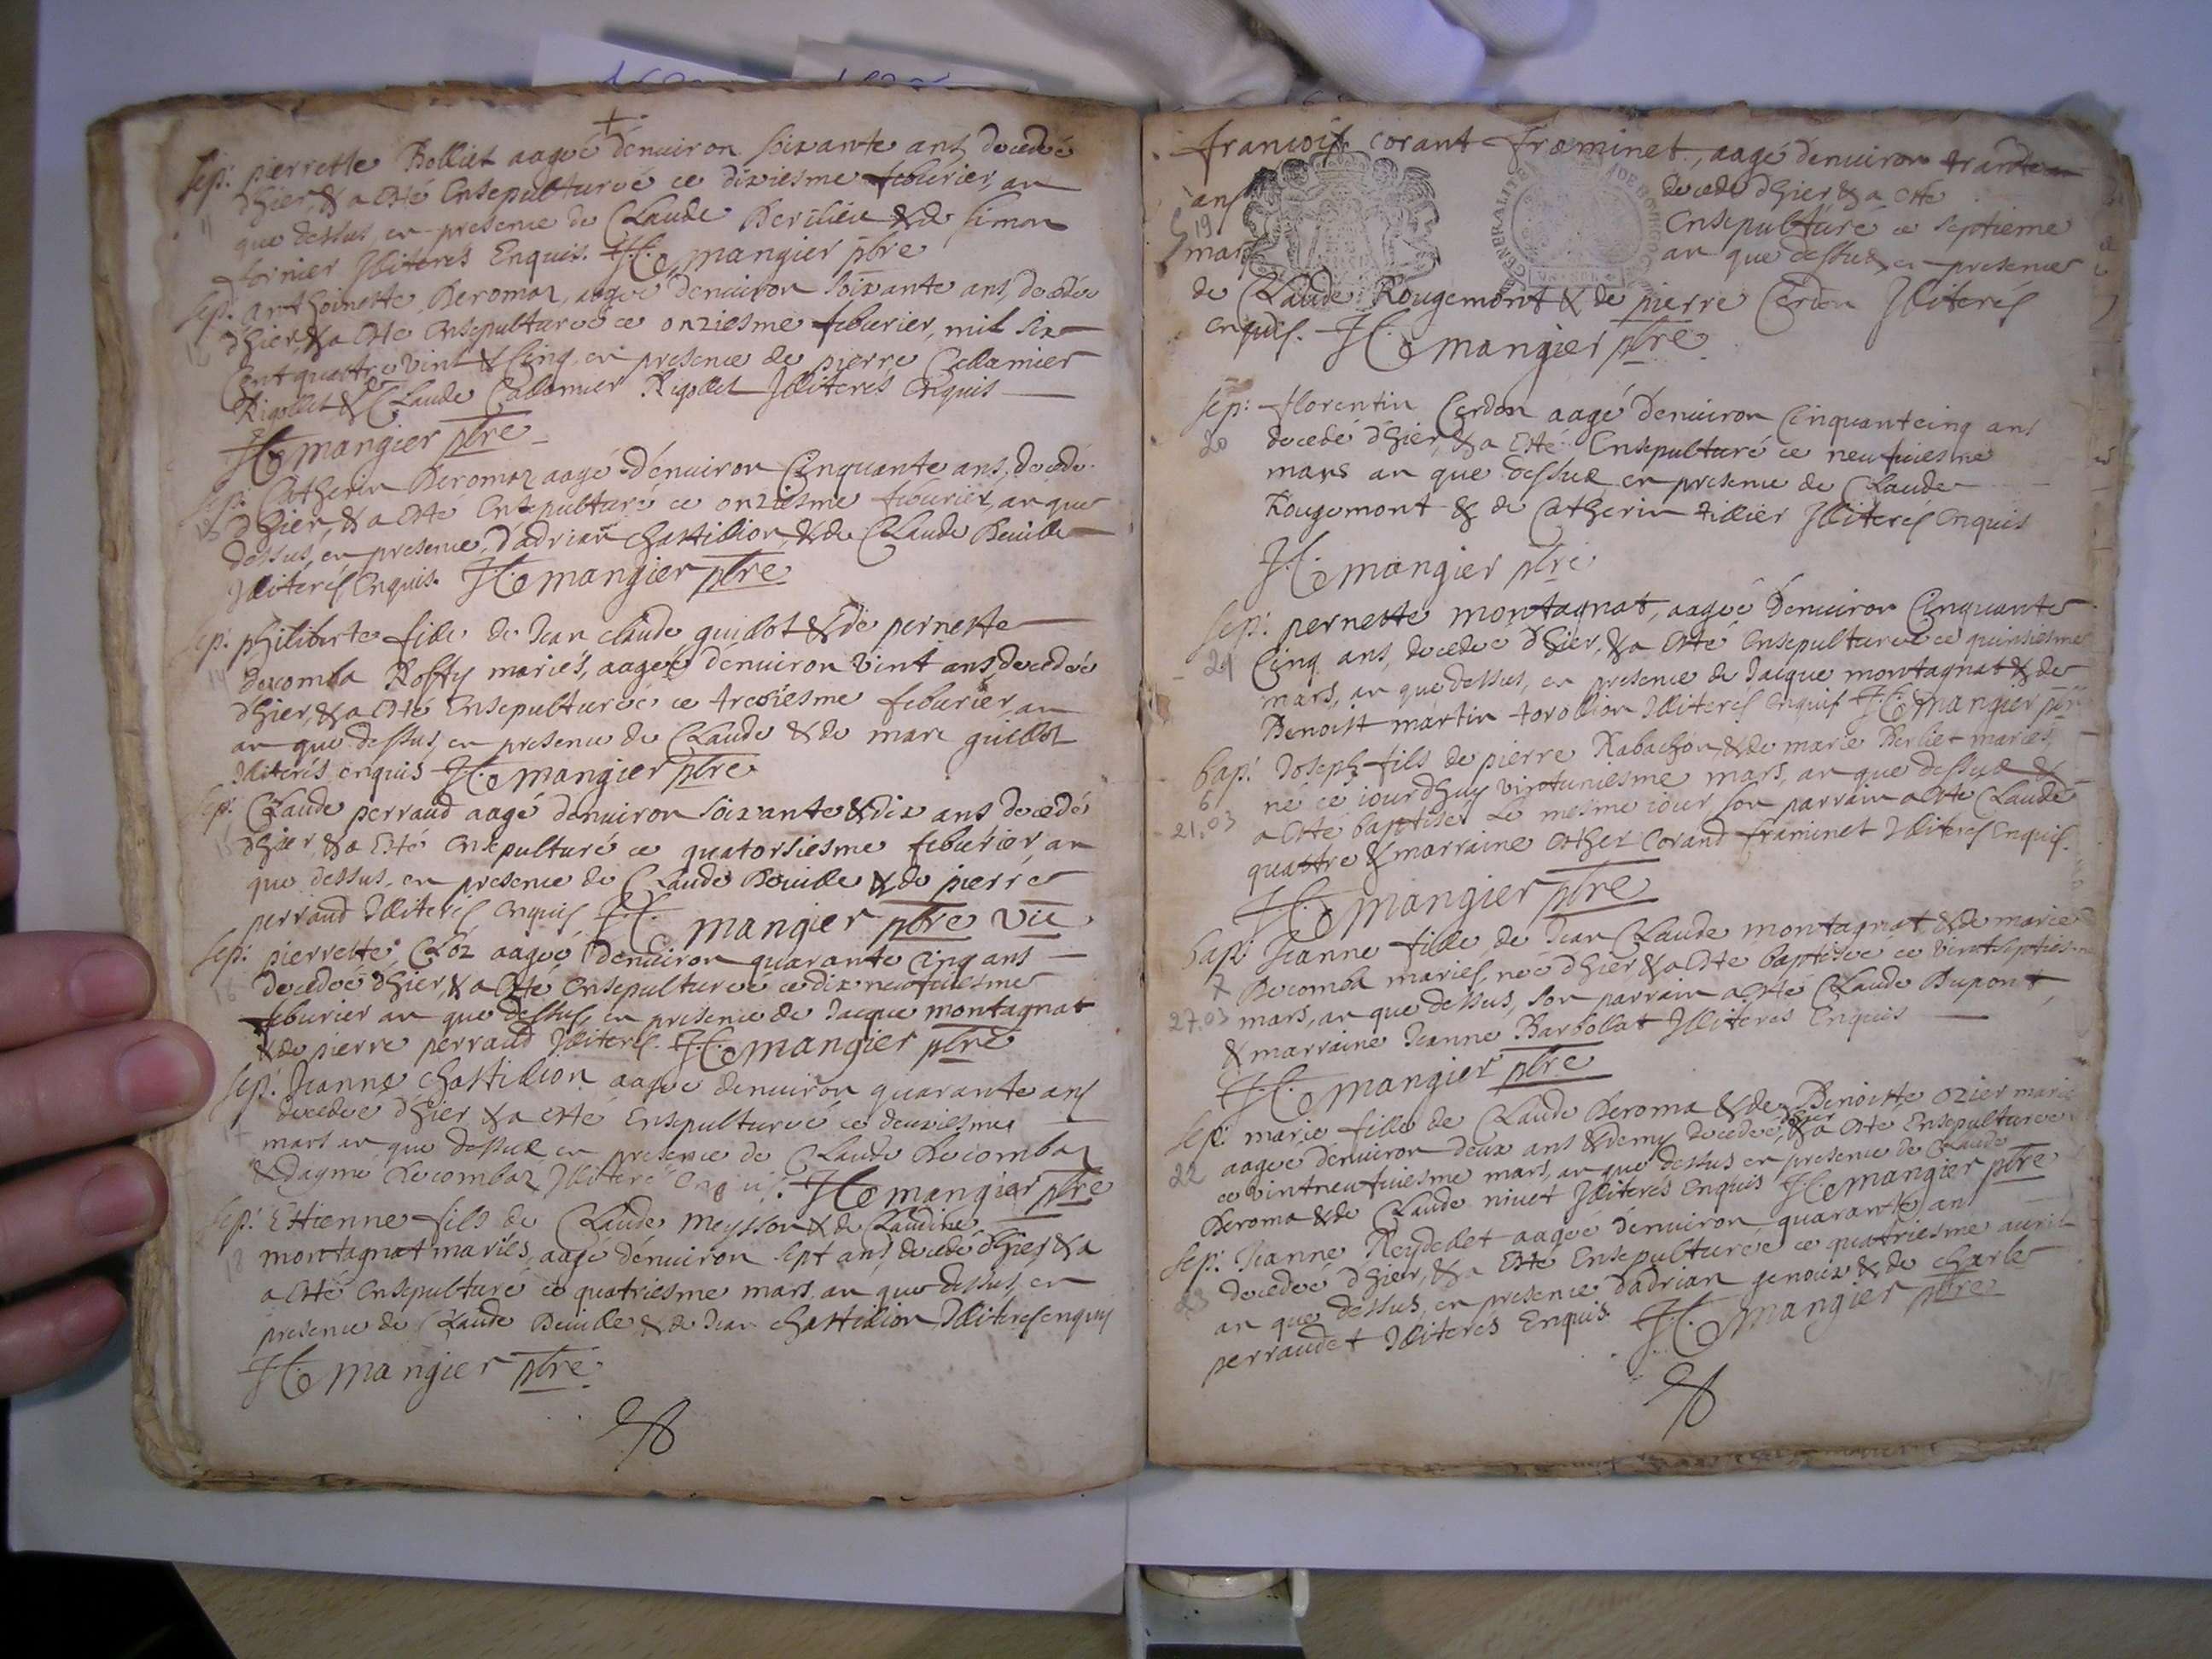 +
sep: pierrette Rolliet aageé dénuiron soixante ans, decedeé
11 d'hier, & a esté Ensepultureé ce dixiesme feburier, an
que dessus, en presence de Claude & de simon
fornier Illiterés Enquis. mangier pbre
sep: anthoinette Deromaz, aageé dénuiron soixante ans, decedeé
12 d'hier, & a esté ensepultureé ce onziesme feburier, mil six
Cent quattre vint & Cinq, en presence de pierre Callamier
Rigollet & de Claude Rigollet Illiterés Enquis
mangier pbre
sep: Catherin Deromaz aagé dénuiron Cinquante ans, decedé
13 d'hier, & a esté Ensepulturé ce onziesme feburier, an que
dessus, en presence, d'adrian chastillion, & de Claude
Illiterés Enquis. mangier pbre
sep: philiberte fille de Jean claude guillot & de pernette
14 decomba mariés, aageé dénuiron vint ans, decedeé
d'hier, & a esté Ensepultureé ce tresiesme feburier, an
an que dessus, en presence de Claude & de marc guillot
Illiterés enquis mangier pbre
sep: Claude perraud aagé denuiron soixante & dix ans decedé
15 d'hier, & a esté ensepulturé ce quatorsiesme feburier, an
que dessus, en presence de Claude & de pierre
perraud Illiterés enquis mangier pbre vic
sep: pierrette Cloz aageé dénuiron quarante cinq ans
16 decedeé d'hier, & a esté ensepultureé ce dix neufuiesme
feburier an que dessus, en presence de Jacque montagnat
& de pierre perraud Illiterés. mangier pbre
sep: Jeanne chastillion aageé denuiron quarante ans
17 decedeé d'hier & a esté Ensepultureé ce deuxiesme
mars an que dessus en presence de Claude Decombaz
& d'aymé Decombaz Illiteré enquis. mangier pbre
sep: Estienne fils de Claude meysson & de Claudine
18 montagnat mariés, aagé dénuiron sept ans, decedé d'hier, & a
a esté ensepulturé ce quatriesme mars, an que dessus, en
presence de Claude & de Jean chastillion Illiterés enquis
mangier pbre

francois corant framinet, aagé denuiron trante
ans decedé d'hier, & a esté
19 Ensepulturé ce septieme
mars an que dessus, en presence
de Claude Rougemont & de pierre Cerdon Illiterés
enquis. mangier pbre
sep: florentin Cerdon aagé dénuiron Cinquantcinq ans
20 decedé d'hier, & a esté Ensepulturé ce neufuiesme
mars an que dessus en presence de Claude
Rougemont & de Catherin tillier Illiterés enquis
mangier pbre
sep: pernette montagnat, aageé dénuiron Cinquante
21 Cinq ans, decedeé d'hier, & a esté Ensepultureé ce quinsiesme
mars, an que dessus, en presence de Jacque montagnat & de
Benoist martin torollion Illiterés enquis mangier pbre
bap: Joseph fils de pierre Rabachon, & de marie Berliet mariés,
6 né ce iourd'huy vintuniesme mars, an que dessus &
21.03 a esté baptisé le mesme iour, son parrain a esté Claude
quattre & marraine esther Corand framinet Illiterés enquis.
mangier pbre
bap: Jeanne fille de Jean Claude montagnat & de marie
7 Decomba mariés, neé d'hier, & a esté baptiseé ce vintseptiesme
27.03 mars, an que dessus, son parrain a esté Claude Dupont,
& marraine Jeanne Barbollat Illiterés Enquis
mangier pbre
sep: marie fille de Claude Deroma & de Benoitte ozier mariés
22 aageé dénuiron deux ans & demy decedeé d'hier, & a esté Ensepultureé
ce vintneufuiesme mars, an que dessus en presence de Claude
Deroma & de Claude niuet Illiterés Enquis mangier pbre
sep: Jeanne Reydellet aageé dénuiron quarante ans
23 decedeé d'hier, & a esté Ensepultureé ce quatriesme auril
an que dessus, en presence d'adrian genoux & de charle
perraudet Illiterés Enquis. mangier pbre